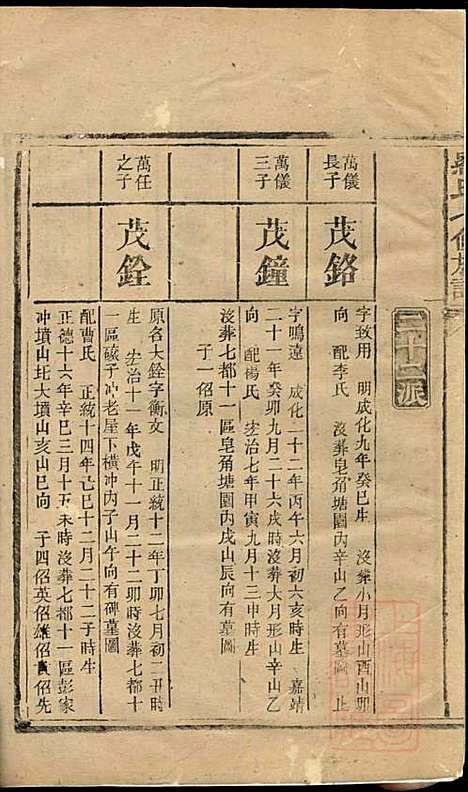 二十二派
萬儀長子
茂銘
字致用 明成化九年癸巳生 沒葬小月形山酉山卯
向 配李氏 沒葬皂角塘園內辛山乙向有墓圖 止
萬儀三子
茂鐘
字鳴遠 成化二十二年丙午六月初六亥時生 嘉靖
二十一年癸卯九月二十六戌時沒葬大月形山辛山乙
向 配楊氏 宏治七年甲寅九月十三申時生
沒葬七都十一區皂角塘園內戌山辰向有墓圖
子一佋原
萬任之子
茂銓
原名大銓字衡文 明正統十二年丁卯七月初二丑時
生 宏治十一年戊午十一月二十二卯時沒葬七都十
一區磙子冲老屋下橫冲內子山午向有碑墓圖
配曹氏 正統十四年己巳十二月二十二子時生
正德十六年辛巳三月十五未時沒葬七都十一區彭家
冲墳山圫大墳山亥山巳向 子四佋英佋雄佋賁佋先